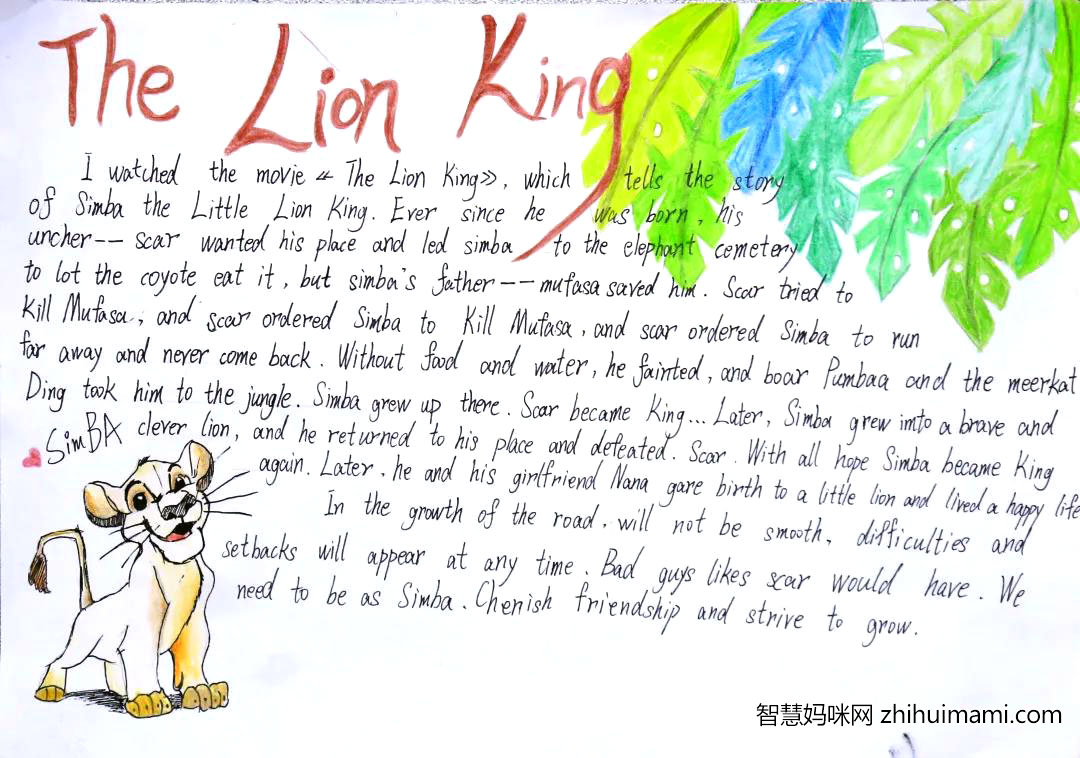 The Lion King
I watched the movie « The Lion King», which tells the story
of Simba the Little Lion King. Ever since he was born, his
uncher-- scar wanted his place and led simba to the elephant cemetery
to lot the coyote eat it, but simba's father -- mufasa saved him. Scar tried to
Kill Mufasa, and scar ordered Simba to Kill Mufasa, and scar ordered Simba to run
far away and never come back. Without food and water, he fainted, and boar Pumbaa and the meerkat
Ding took him to the jungle. Simba grew up there. Scar became King... Later, Simba grew imto a brave and
clever lion, and he returned to his place and defeated. Scar. With all hope Simba became King
again. Later, he and his girlfriend Nana gare birth to a little lion and lived a happy life
In the growth of the road, will not be smooth, difficulties and
setbacks will appear at any time. Bad guys likes scar would have. We
need to be as Simba. Cherish friendship and strive to grow.
SimBA
智慧妈咪网 zhihuimami.com